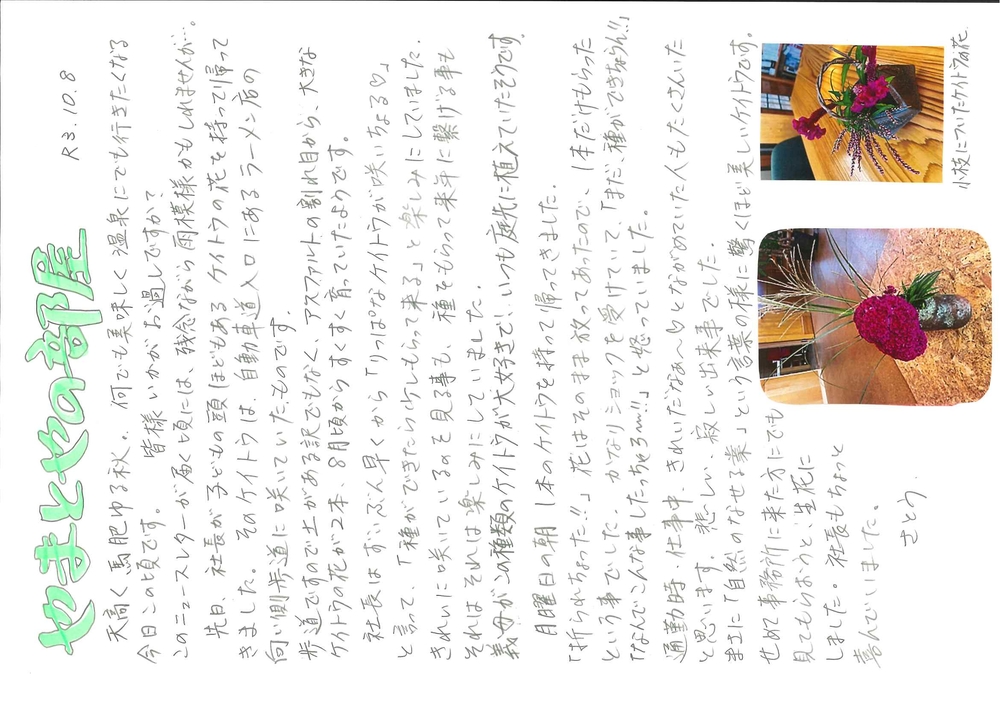 やまとやの部屋
R3.10.8
天高く馬肥ゆる秋。何でも美味しく温泉にでも行きたくなる
今日この頃です。 皆様いかがお過しですか？
このニュースレターが届く頃には、残念ながら雨模様かもしれませんが…。
先日、社長が子どもの頭ほどもあるケイトウの花を持って帰って
きました。そのケイトウは、自動車道入口にあるラーメン店の
向い側歩道に咲いていたものです。
歩道ですので土がある訳でもなく、アスファルトの割れ目から、大きな
ケイトウの花が2本、8月頃からすくすく育っていたようです。
社長はずいぶん早くから「りっぱなケイトウが咲いちょる♡」
と言って、「種ができたら少しもらって来る」と楽しみにしていました。
きれいに咲いているのを見る事も、種をもらって来年に繋げる事も
それはそれは楽しみにしていました。
義母がこの種類のケイトウが大好きで、いつも庭先に植えていたそうです。
月曜日の朝、1本のケイトウを持って帰ってきました。
「折られちょった!!」花はそのまま放ってあったので、1本だけもらった
という事でした。かなりショックを受けていて、「まだ、種ができちょらん!!」
「なんでこんな事したっちゃろ〜!!」と怒っていました。
通勤時・仕事中、きれいだなぁ〜んとながめていた人もたくさんいた
と思います。悲しい、寂しい出来事でした。
まさに「自然のなせる業」という言葉の様に驚くほど美しいケイトウです。
せめて事務所に来た方にでも
見てもらおうと生花に
しました。社長もちょっと
喜んでいました。
さとう
小枝についたケイトウの花